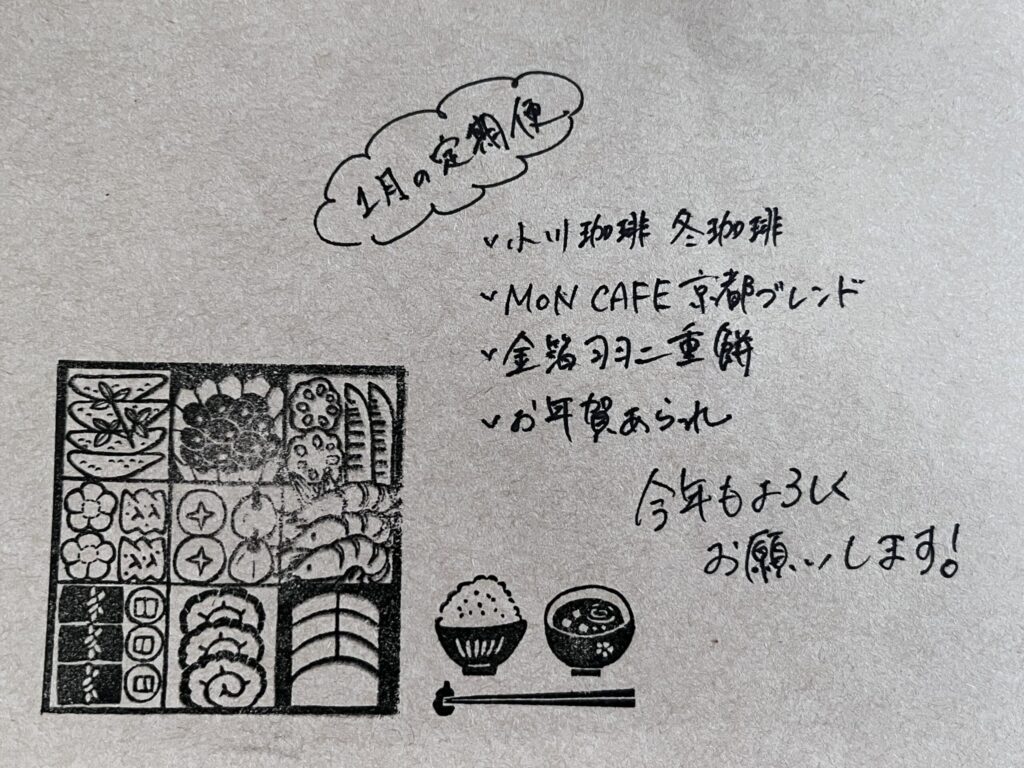 1月の定期便
✓小川珈琲 冬珈琲
✓MON CAFE 京都ブレンド
✓金箔羽二重餅
✓お年賀あられ
今年もよろしく
お願いします!